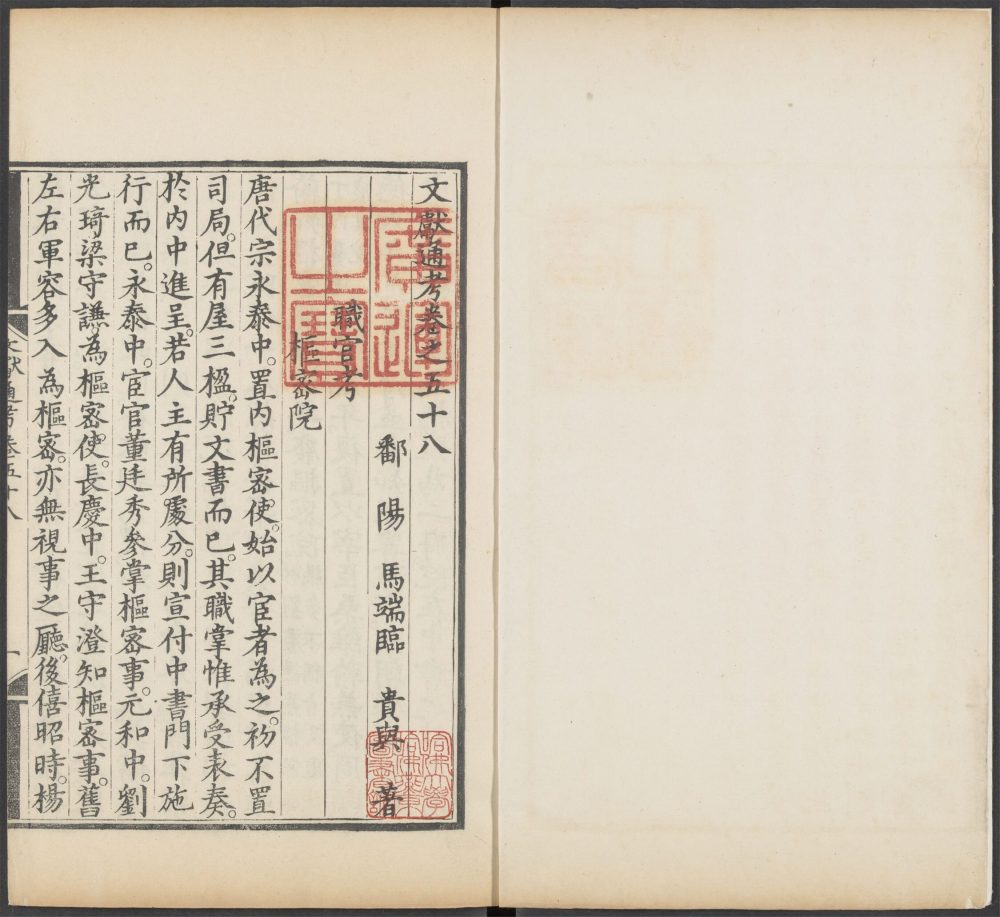 文獻通考卷之五十八
鄱陽馬端臨貴與著
職官考
樞密院
唐代宗永泰中。置內樞密使。始以宦者為之。初不置
司局。但有屋三楹。貯文書而已。其職掌惟承受表奏。
於內中進呈。若人主有所處分。則宣付中書門下施
行而已。永泰中。宦官董廷秀參掌樞密事。元和中。劉
光琦梁守謙為樞密使。長慶中。王守澄知樞密事。舊
左右軍容多入為樞密。亦無視事之廳。後僖昭時。楊
文獻通考卷五十八
一